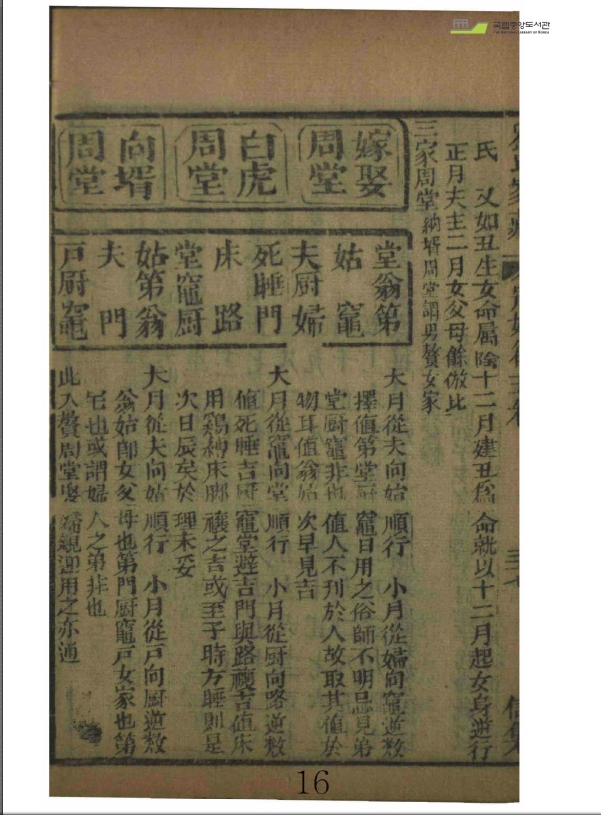 국립중앙도서관
THE NATIONAL LIBRARY OF KOREA
氏 又如丑生女命屬陰十二月建丑爲命就以十二月起女身逆行
正月夫主二月女父母餘倣此
三家周堂 納壻周堂謂男贅女家
嫁娶周堂
白虎周堂
向壻周堂
堂翁第
姑竈
夫厨婦
死睡門
床路
堂竈厨
姑第翁
夫門
戸厨竈
大月從夫向姑順行 小月從婦向竈逆数
擇值第堂厨竈日用之俗師不明
堂厨竈非也值人不刊於人故取其值於
物耳值翁姑次早見吉
大月從竈向堂順行 小月從厨向路逆数
值死睡吉厨竈堂避吉門與路 吉值床
用鷄 床脚禳之吉或至子時方睡則是
次日辰矣於理未妥
大月從夫向姑順行 小月從戸向厨逆数
翁姑卽女父母也第門厨竈戸女家也第
宅也或謂婦人之弟非也
此入贅周堂娶 親迎用之亦通
信集
16